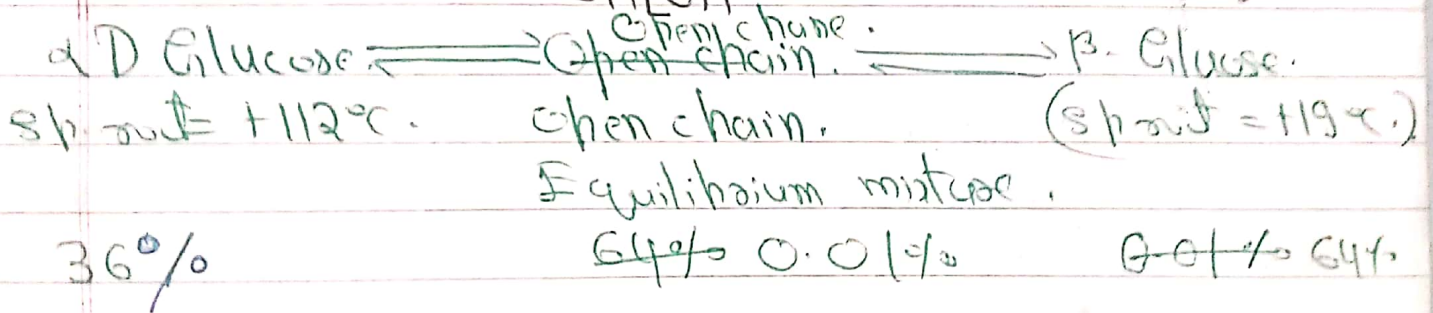 Open chane.
αD Glucose ⇌ Open chain. ⇌ β- Glucose.
sp. rot = +112°C. Open chain. (sp rot = +19°C.)
Equilibrium mixture.
36% 64% 0.01% 0.01% 64%